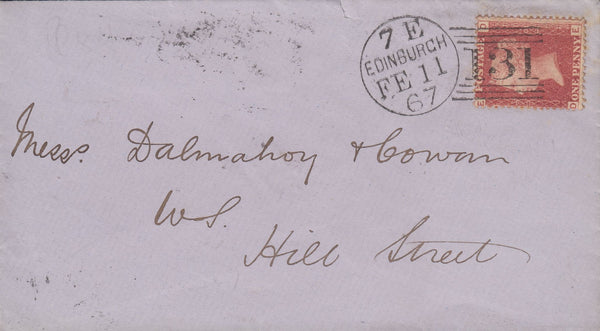 7 E
EDINBURCH
FE 11
67
131
D E
POSTAGE
ONE PENNY
E D
Messs. Dalmahoy & Cowan
W.S.
Hill Street